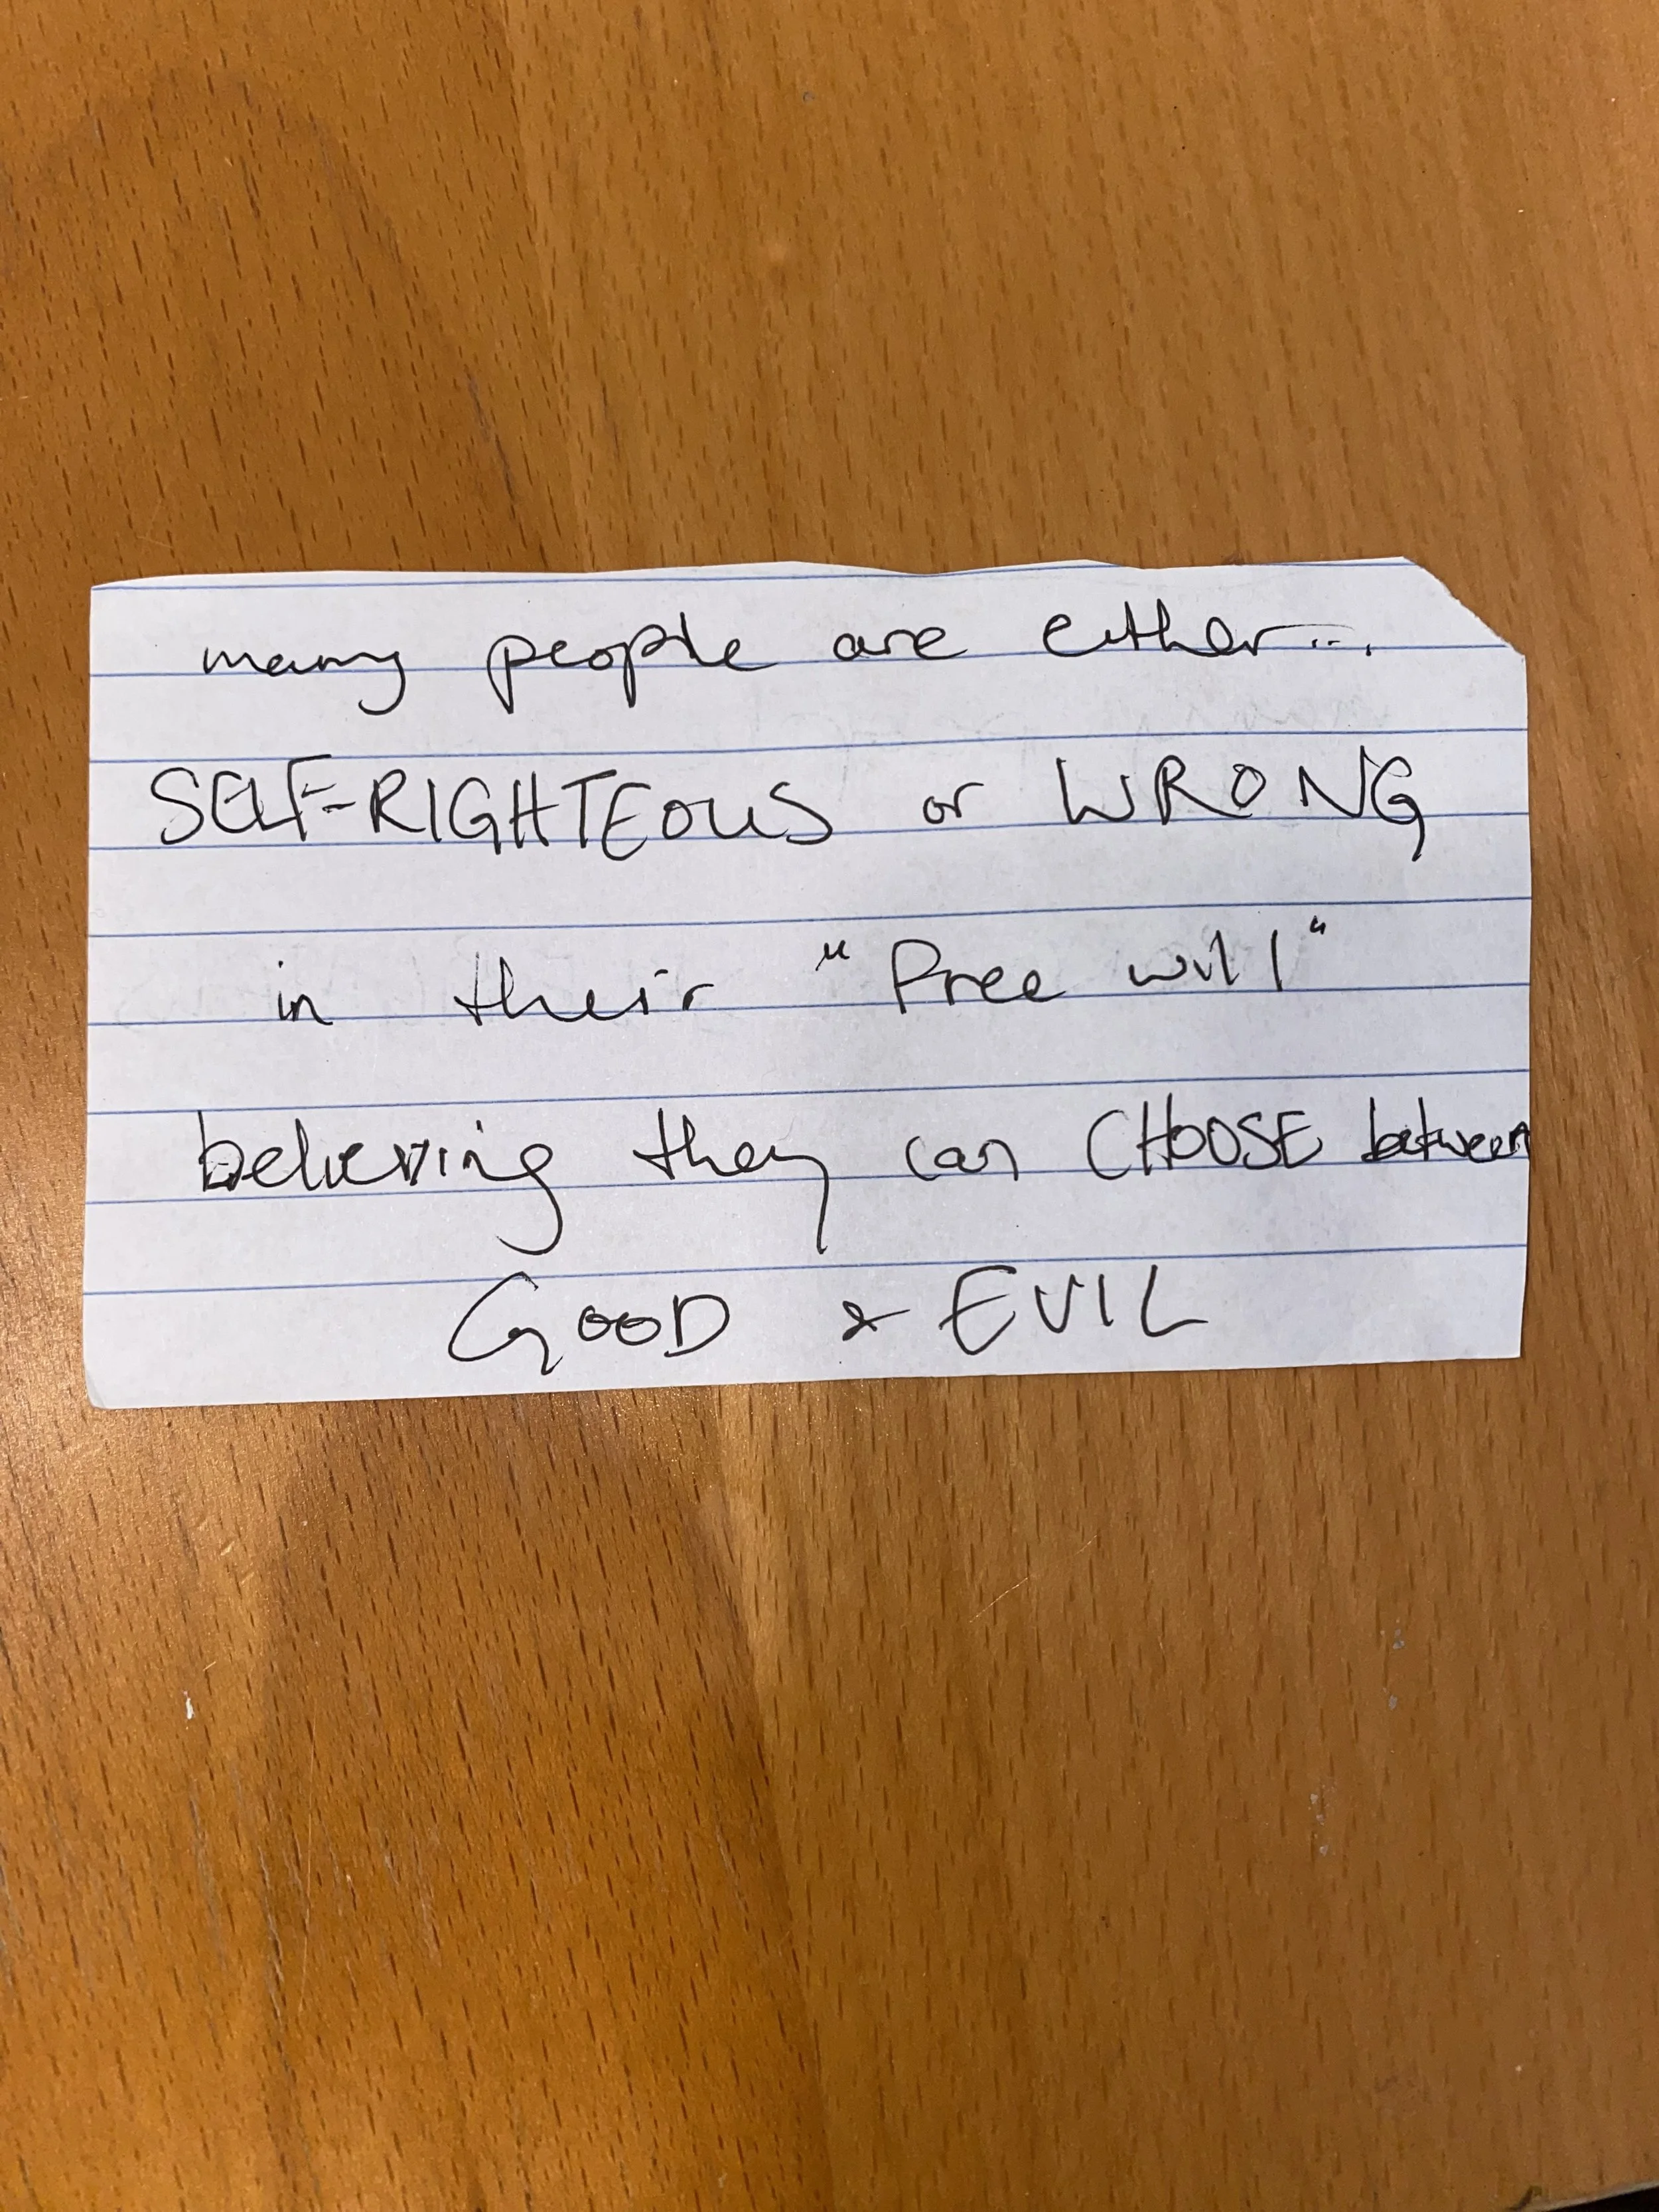 many people are either...
SELF-RIGHTEOUS or WRONG
in their "free will"
believing they can CHOOSE between
GOOD & EVIL